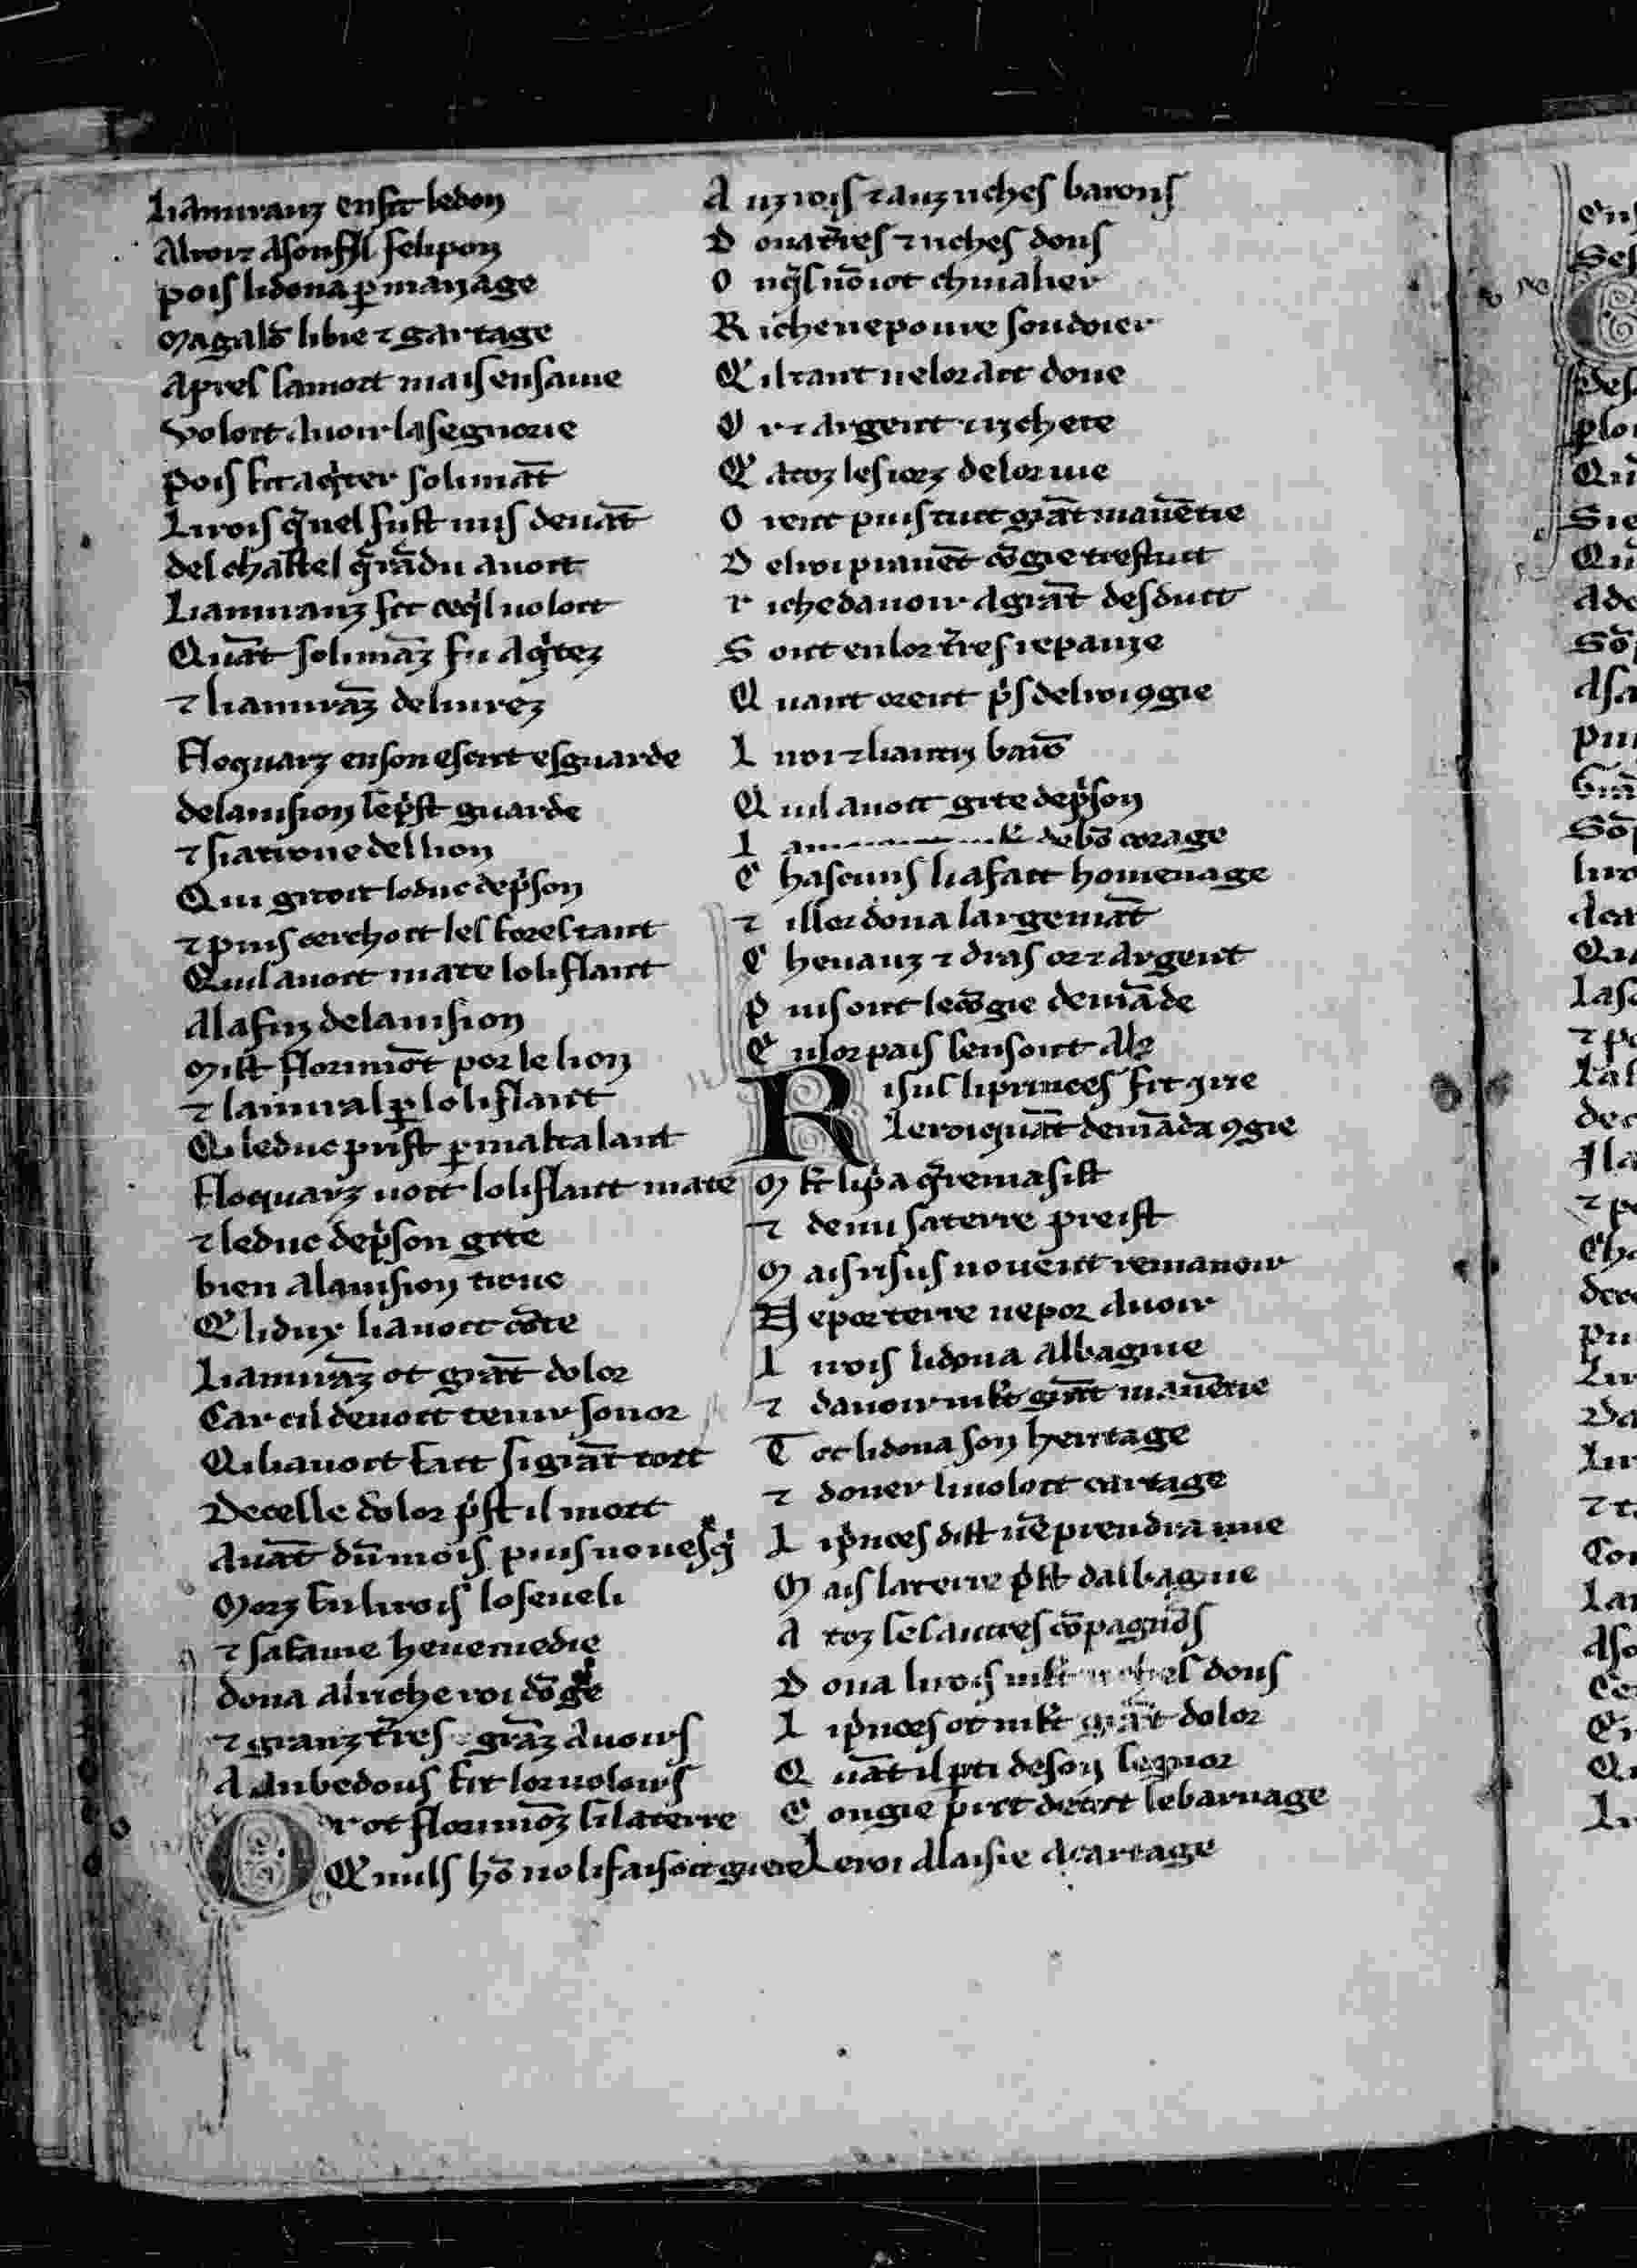 Liamiranz en fit le don
Al roi ⁊ a son fil felipon
pois li dona p̱ mariage
Magalō libie ⁊ gartage
Apres sa mort mais en sa uie
Voloit auoir la segnorie
Pois fit aq̇ter solimāt
Li rois q̄ nel fust mis deuāt
del chastel q̄ rādu auoit
Liamiranz fit ceq̇l uoloit
Quāt solimāz fu aq̇tez
⁊ liamirāz deliurez
Floquarz en son escrit esguarde
de lauision sēp̍st guarde
⁊ si a troue del lion
Qui gitoit lo duc dep̍son
⁊ puis cerchoit les fores tant
Quil auoit mate lolifant
A la fin de lauision
Mist florimōt por le lion
⁊ lamiral p̱ lolifant
Qi le duc prist p̱ maltalant
Floquarz uoit lolifant mate
⁊ le duc dep̍son gite
bien a lauision troue
Q li dux li auoit cōte
Liamirāz ot grāt dolor
Car cil deuoit tenir sonor
Qi li auoit fait si grāt tort
De celle dolor p̍st il mort
Auāt dū mois puis no uesq̇
Morz fu li rois lo seueli
⁊ sa fame heuemedie
dona al riche roi dōge
⁊ granz t̄res ⁊ grāz auoirs
A anbedous fit lor uoloirs
Or ot florimōz si la terre
Q nuls hō no li faisoit guere
Auz rois ⁊ auz riches barons
Dona t̄res ⁊ riches dons
Onq̇l nō iot chiualier
Riche ne poure soudoier
Qil tant ne lor ait done
Or ⁊ argent ⁊ richete
Q a toz les iorz de lor uie
Orent puis tuit grāt manētie
Del roi prauēt cōgie trestuit
riche dauoir a grāt desduit
Sont en lor t̄res repairie
Quant orent p̍s del roi ꝯgie
Li roi ⁊ li autri barō
Quil auoit gite dep̍son
debō corage
Chascuns li a fait homenage
⁊ il lor dona largemāt
Cheuauz ⁊ dras or ⁊ argent
Puis ont le cōgie demāde
En lor pais sen sont ale
Risus li princes fit ꝯ ire
Le roi quāt demāda ꝯgie
Mlt̄ li p̍a q̄ remasist
⁊ de lui sa terre preist
Mais risus no ueut remanoir
Ne por terre ne por auoir
Li rois li dona albagnie
⁊ dauoir mlt̄ grāt manētie
Tot li dona son heritage
⁊ doner li uoloit cartage
Li p̍nces dist nē prendra mie
Mais la terre p̍st dalbagnie
A toz les autres cōpagnōs
Dona li rois mlt̄ riches dons
Li p̍nces ot mlt̄ grāt dolor
Quāt il p̱ti de son segnor
Congie prist de tot le barnage
Le roi a laisie a cartage